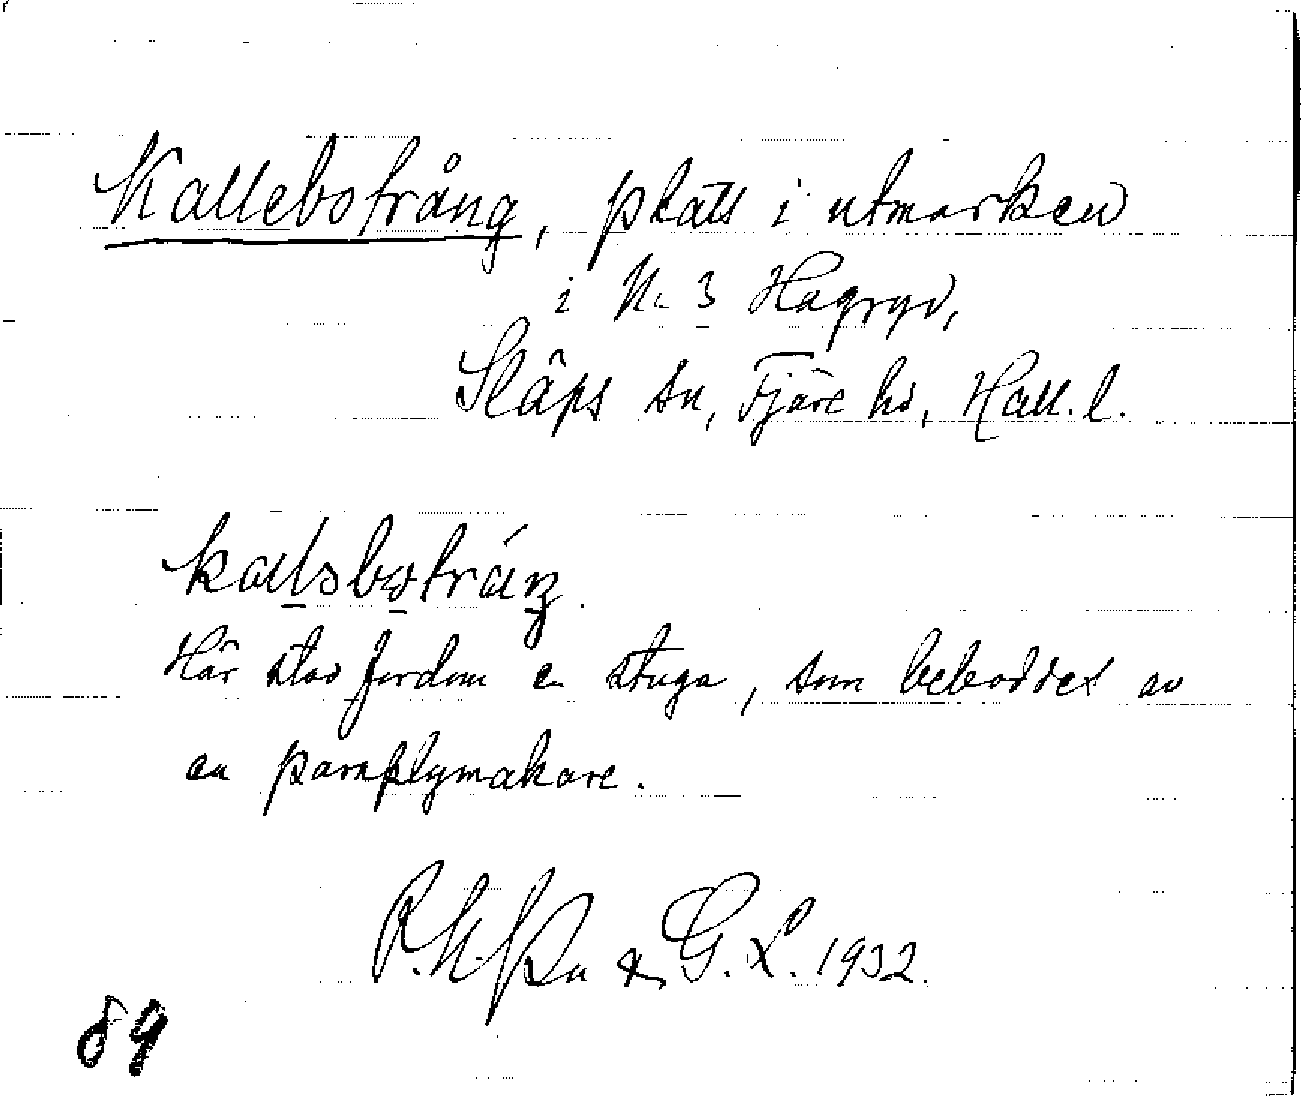 Kallebotrång, plats i utmarken
i No 3 Hagryd,
Släps sn, Fjäre hd, Hall. l.
Här stod fordom en stuga, som beboddes av
en paraplymakare.
& G. L. 1932.
89